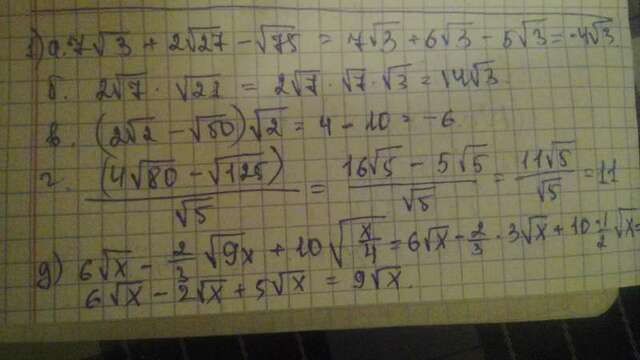 1) а. 7√3 + 2√27 - √75 = 7√3 + 6√3 - 5√3 = -4√3.
б. 2√7 · √21 = 2√7 · √7 · √3 = 14√3.
в. (2√2 - √50)√2 = 4 - 10 = -6
г. (4√80 - √125)/√5 = (16√5 - 5√5)/√5 = 11√5/√5 = 11
д) 6√x - 2/3 √9x + 10√(x/4) = 6√x - 2/3 · 3√x + 10 · 1/2 √x =
6√x - 2√x + 5√x = 9√x.